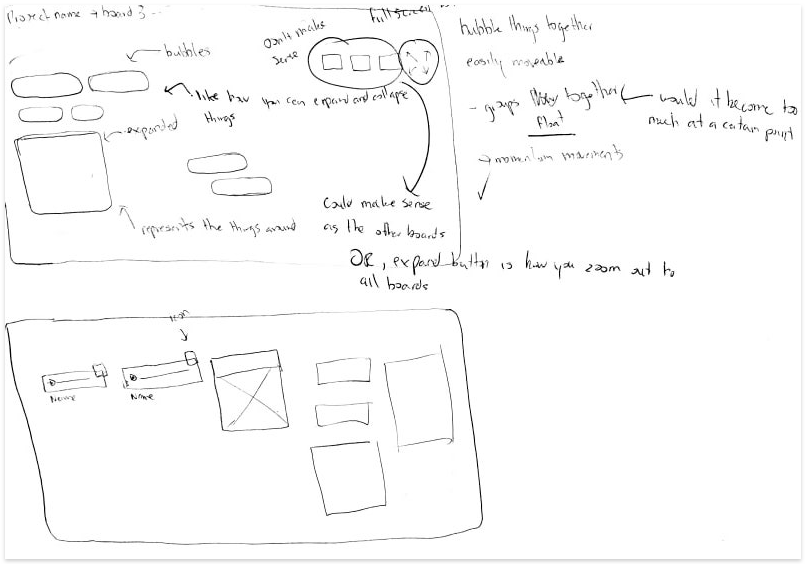 Project name → board 3 ...
full screen
Don't make
sense
bubbles
like how you can expand and collapse
things
expanded
represents the things around
Could make sense
as the other boards
OR, expand button is how you zoom out to
all boards
bubble things together
easily moveable
- groups together
float
would it become too
much at a certain point
→ momentum movements
icon
Name
Name